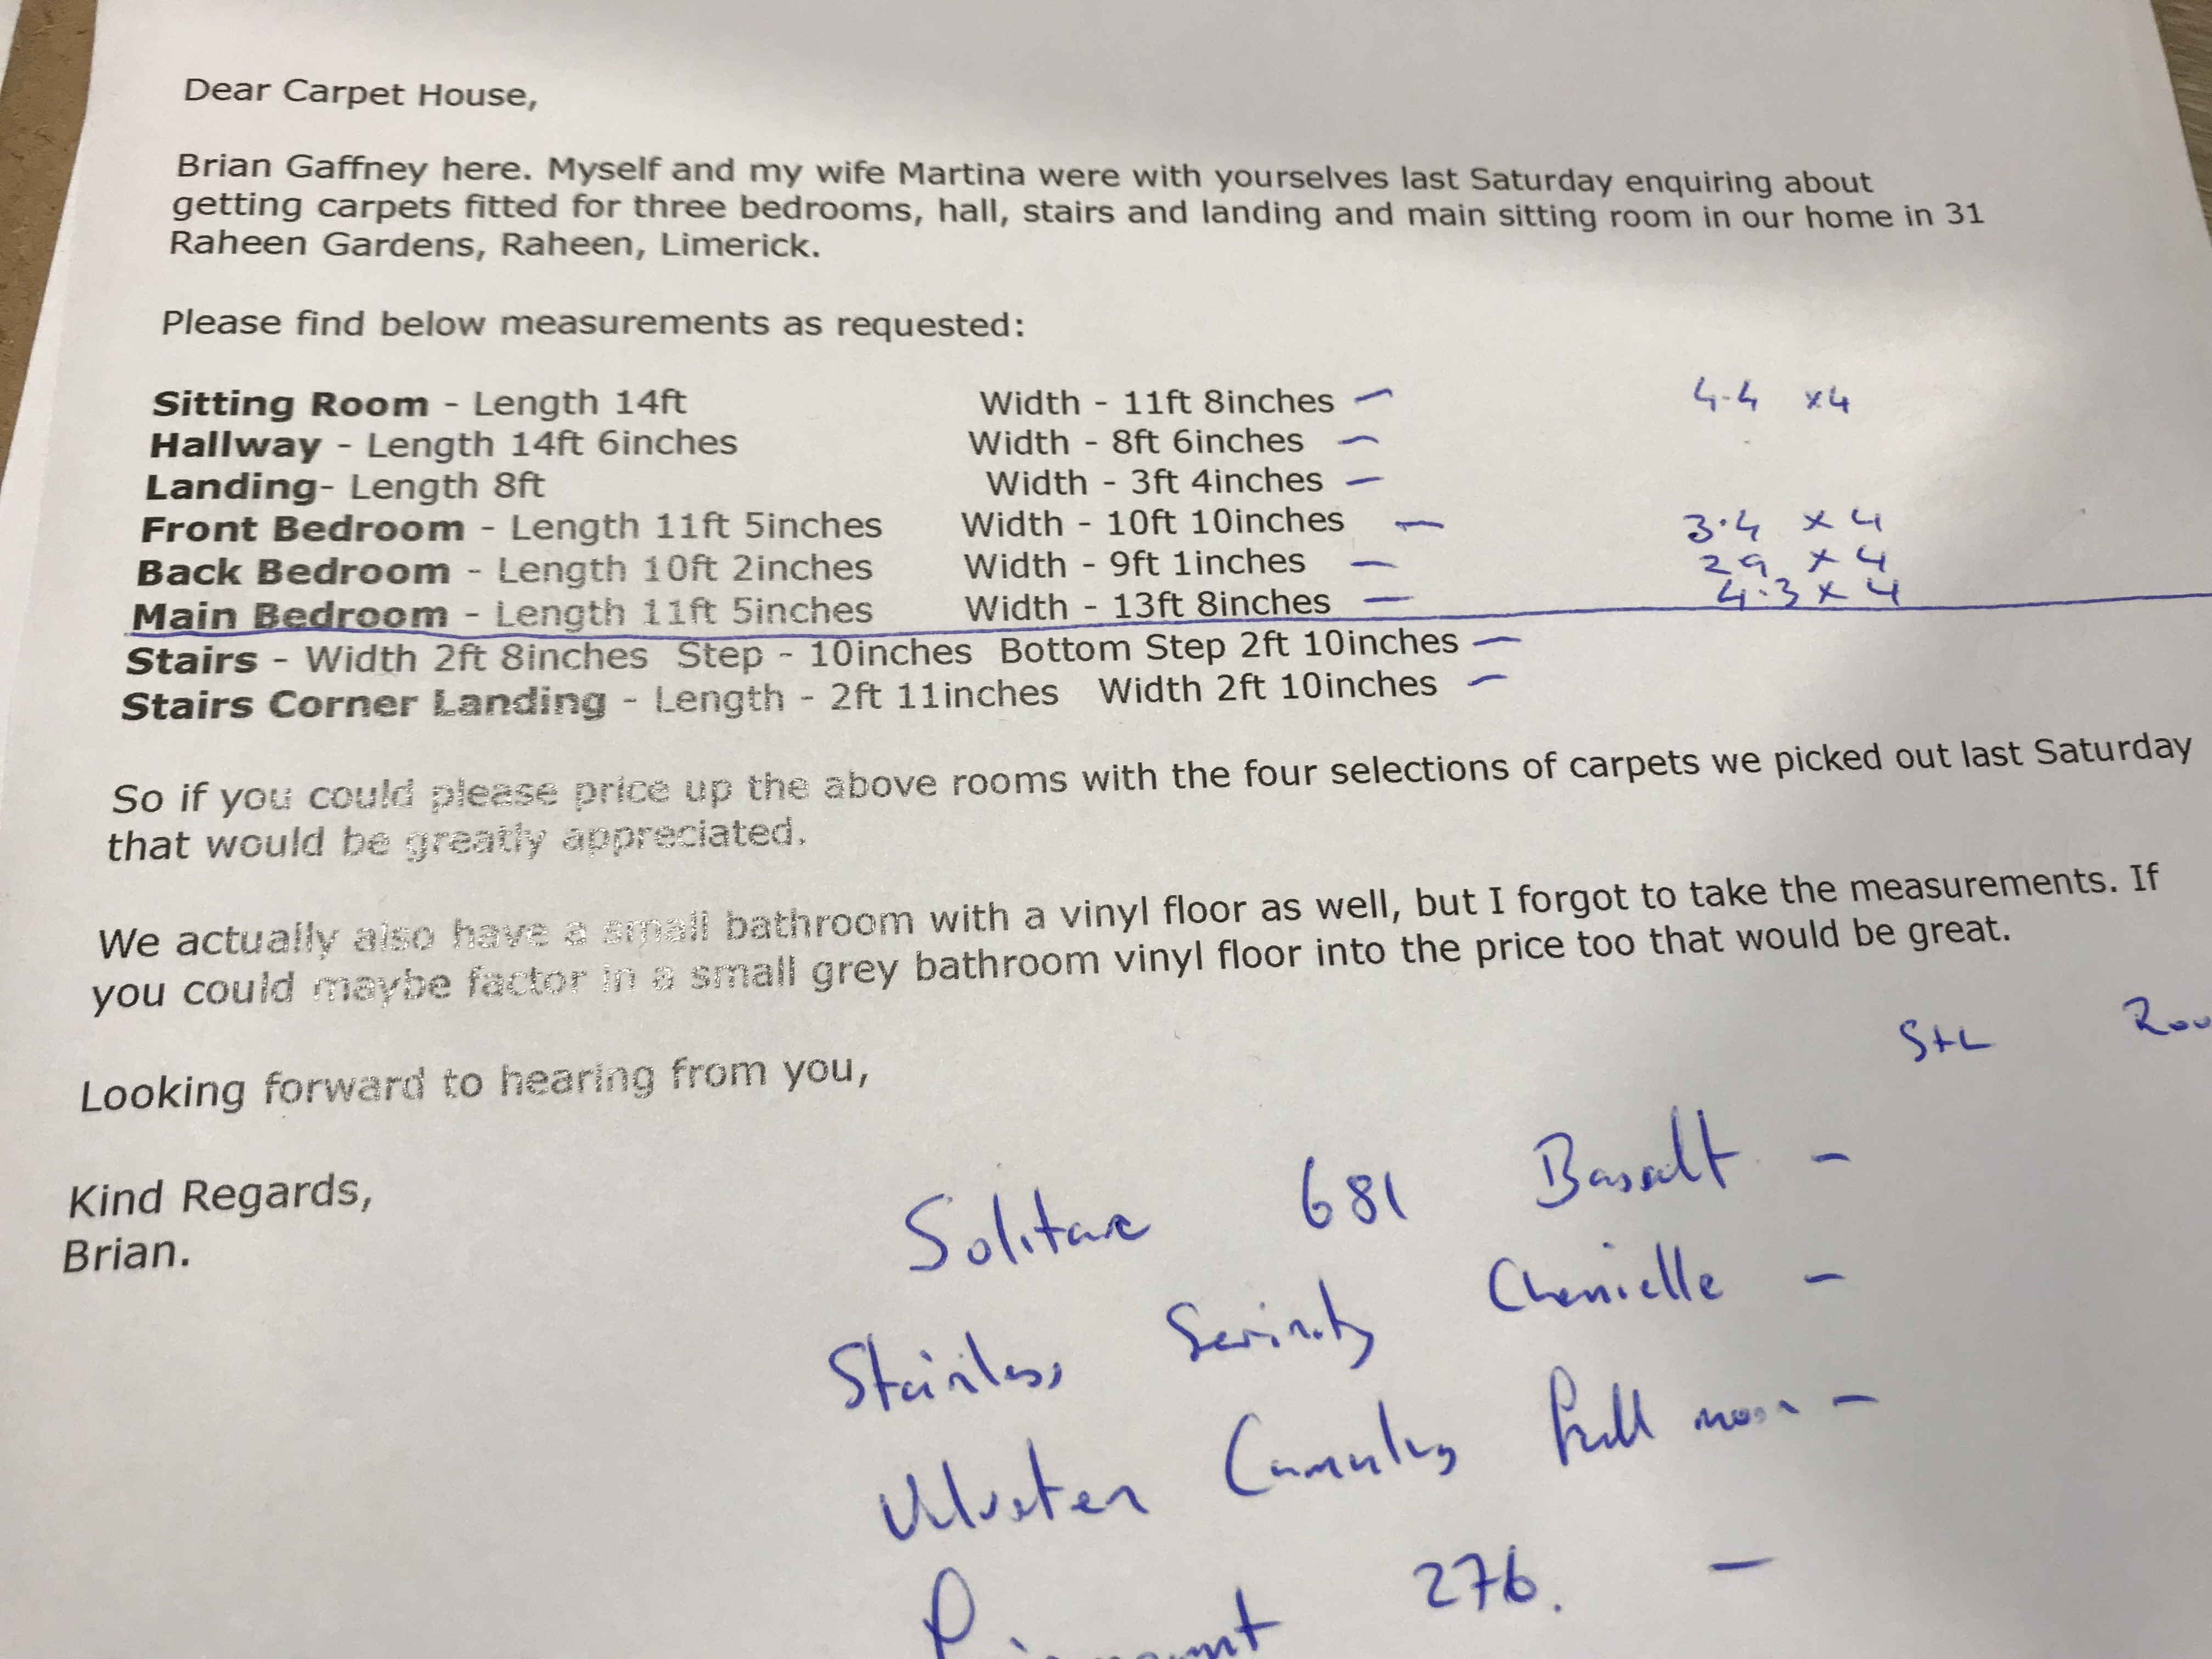 Dear Carpet House,
Brian Gaffney here. Myself and my wife Martina were with yourselves last Saturday enquiring about
getting carpets fitted for three bedrooms, hall, stairs and landing and main sitting room in our home in 31
Raheen Gardens, Raheen, Limerick.
Please find below measurements as requested:
Sitting Room - Length 14ft Width - 11ft 8inches – 4.4 x4
Hallway - Length 14ft 6inches Width - 8ft 6inches –
Landing- Length 8ft Width - 3ft 4inches –
Front Bedroom - Length 11ft 5inches Width - 10ft 10inches – 3.4 x 4
Back Bedroom - Length 10ft 2inches Width - 9ft 1inches – 29 x 4
Main Bedroom - Length 11ft 5inches Width - 13ft 8inches – 4.3 x 4
Stairs - Width 2ft 8inches Step - 10inches Bottom Step 2ft 10inches –
Stairs Corner Landing - Length - 2ft 11inches Width 2ft 10inches –
So if you could please price up the above rooms with the four selections of carpets we picked out last Saturday
that would be greatly appreciated.
We actually also have a small bathroom with a vinyl floor as well, but I forgot to take the measurements. If
you could maybe factor in a small grey bathroom vinyl floor into the price too that would be great.
S+L Roo
Looking forward to hearing from you,
Kind Regards,
Brian.
Solitare 681 Basalt –
Stainless Serinity Chenielle –
Velveten Cumulus full moon –
276. –